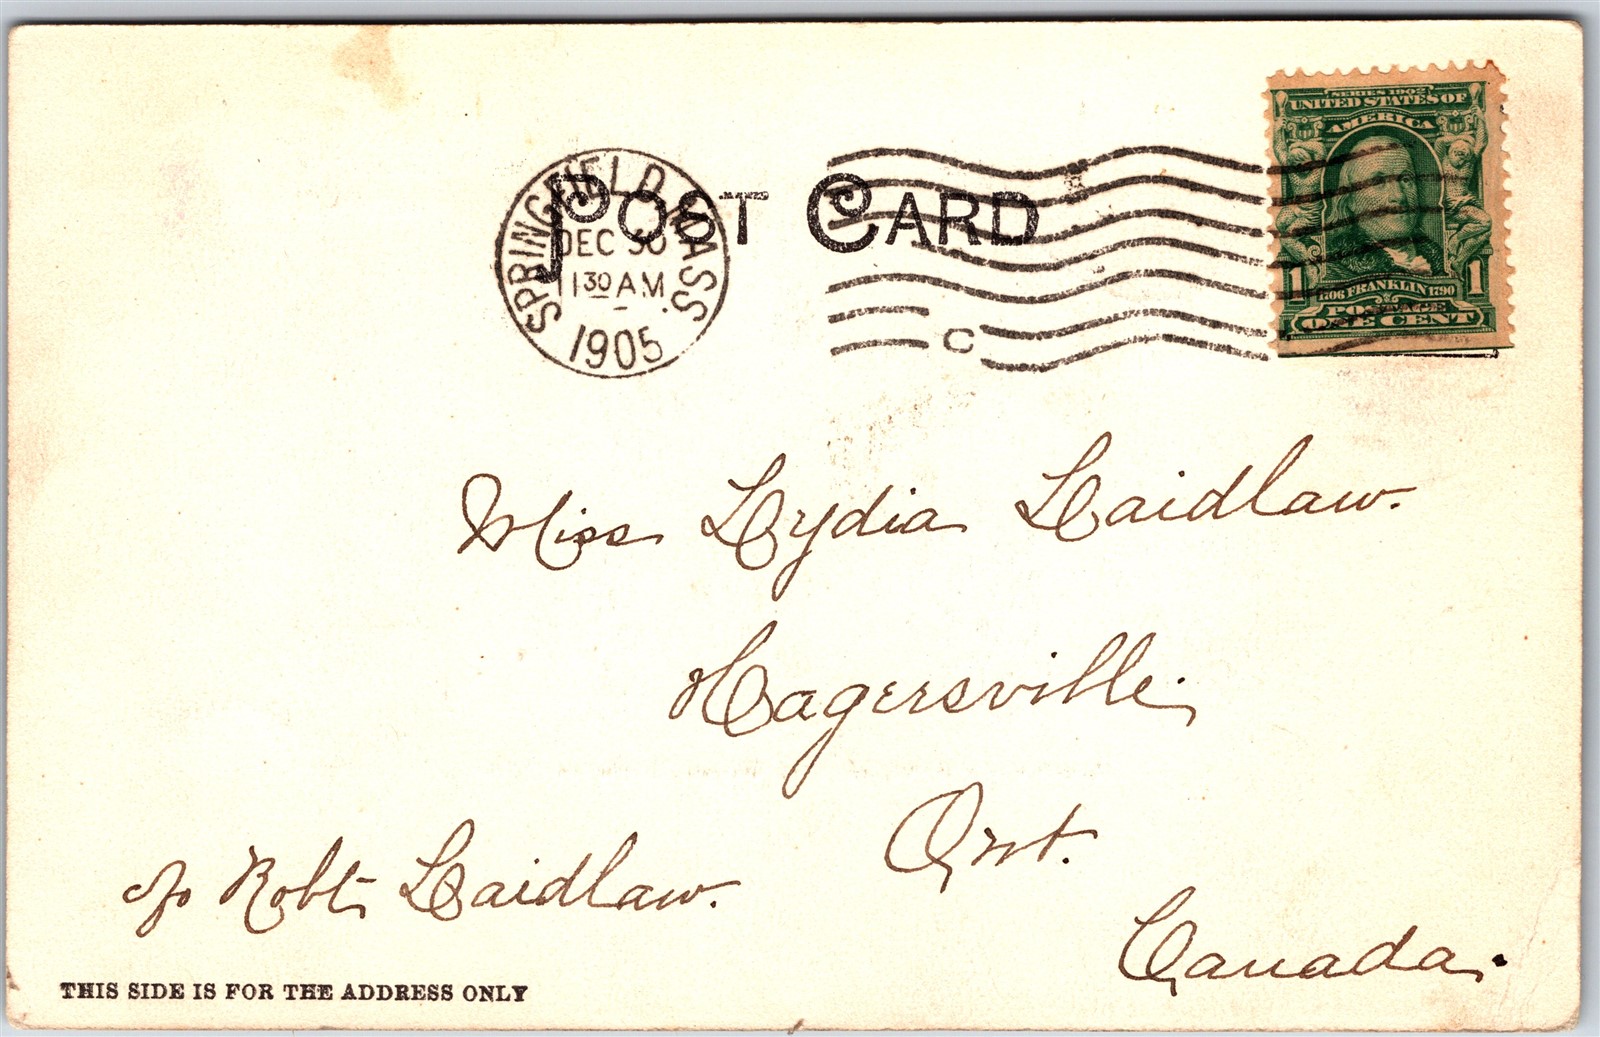 SERIES 1902
UNITED STATES OF
AMERICA
1 1
1706 FRANKLIN 1790
POSTAGE
ONE CENT
SPRINGFIELD, MASS.
DEC 30
1130 AM
1905
C
POST CARD
Miss Lydia Laidlaw.
Hagersville.
Ont.
c/o Robt Laidlaw.
Canada.
THIS SIDE IS FOR THE ADDRESS ONLY